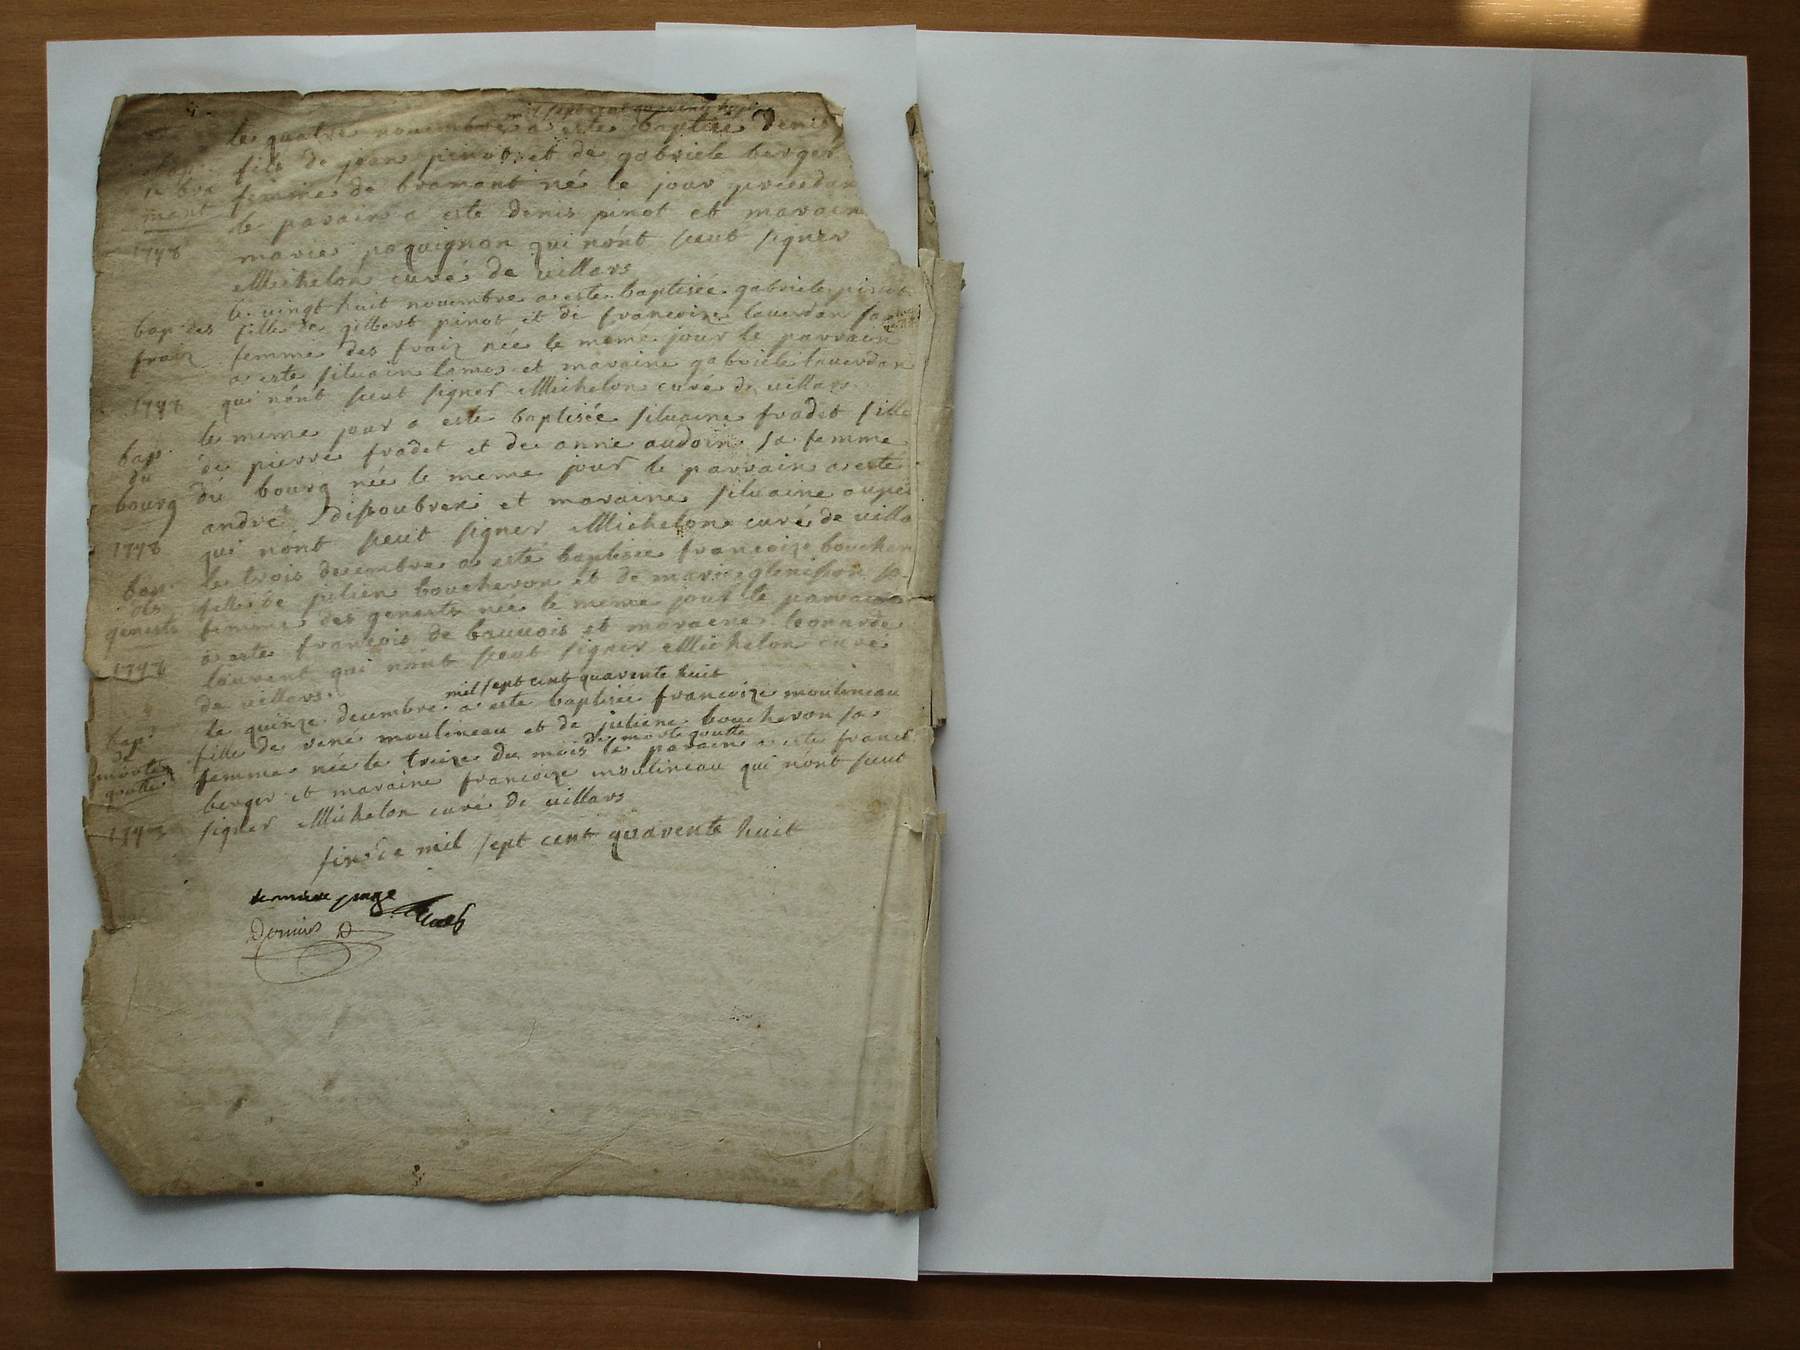 mil sept cent quarente huit
le quatre novembre a este baptisé denis
fils de jean pinot et de gabriele berger
femme de bramant né le jour preceden
le parain a este denis pinot et maraine
marie paquignon qui nónt sceut signer
Michelon curé de villars
bra
mant
1748
le vingt huit novembre a este baptisée gabriele pinot
fille de gilbert pinot et de francoize lauerdan sa
femme des fraiz née le meme jour le parrain
a este siluain lamos et maraine gabriele lauerdan
qui nónt sceut signer Michelon curé de villars
bap. des
fraiz
1748
le meme jour a este baptisée siluaine fradet fille
de pierre fradet et de anne audoin sa femme
du bourg née le meme jour le parrain a este
andre dissoubren et maraine siluaine
qui nónt sceut signer Michelon curé de villa
bap.
du
bourg
1748
le trois decembre a este baptisée francoize boucher
fille de julien boucheron et de marie glenisson sa
femme des genests née le meme jour le parrain
a este francois de bauuois et maraine leonarde
laurent qui nónt sceut signer Michelon curé
de villars.
bap.
des
genests
1748
mil sept cent quarente huit
le quinze decembre a este baptisée francoize moulineau
fille de rené moulineau et de juliene boucheron sa
de morte goutte
femme née le treize du mois le parain a este franc
berger et maraine francoize moulineau qui nont sceut
signer Michelon curé de villars
bap.
de
morte
goutte
1748
fin de mil sept cent quarente huit
derniere page